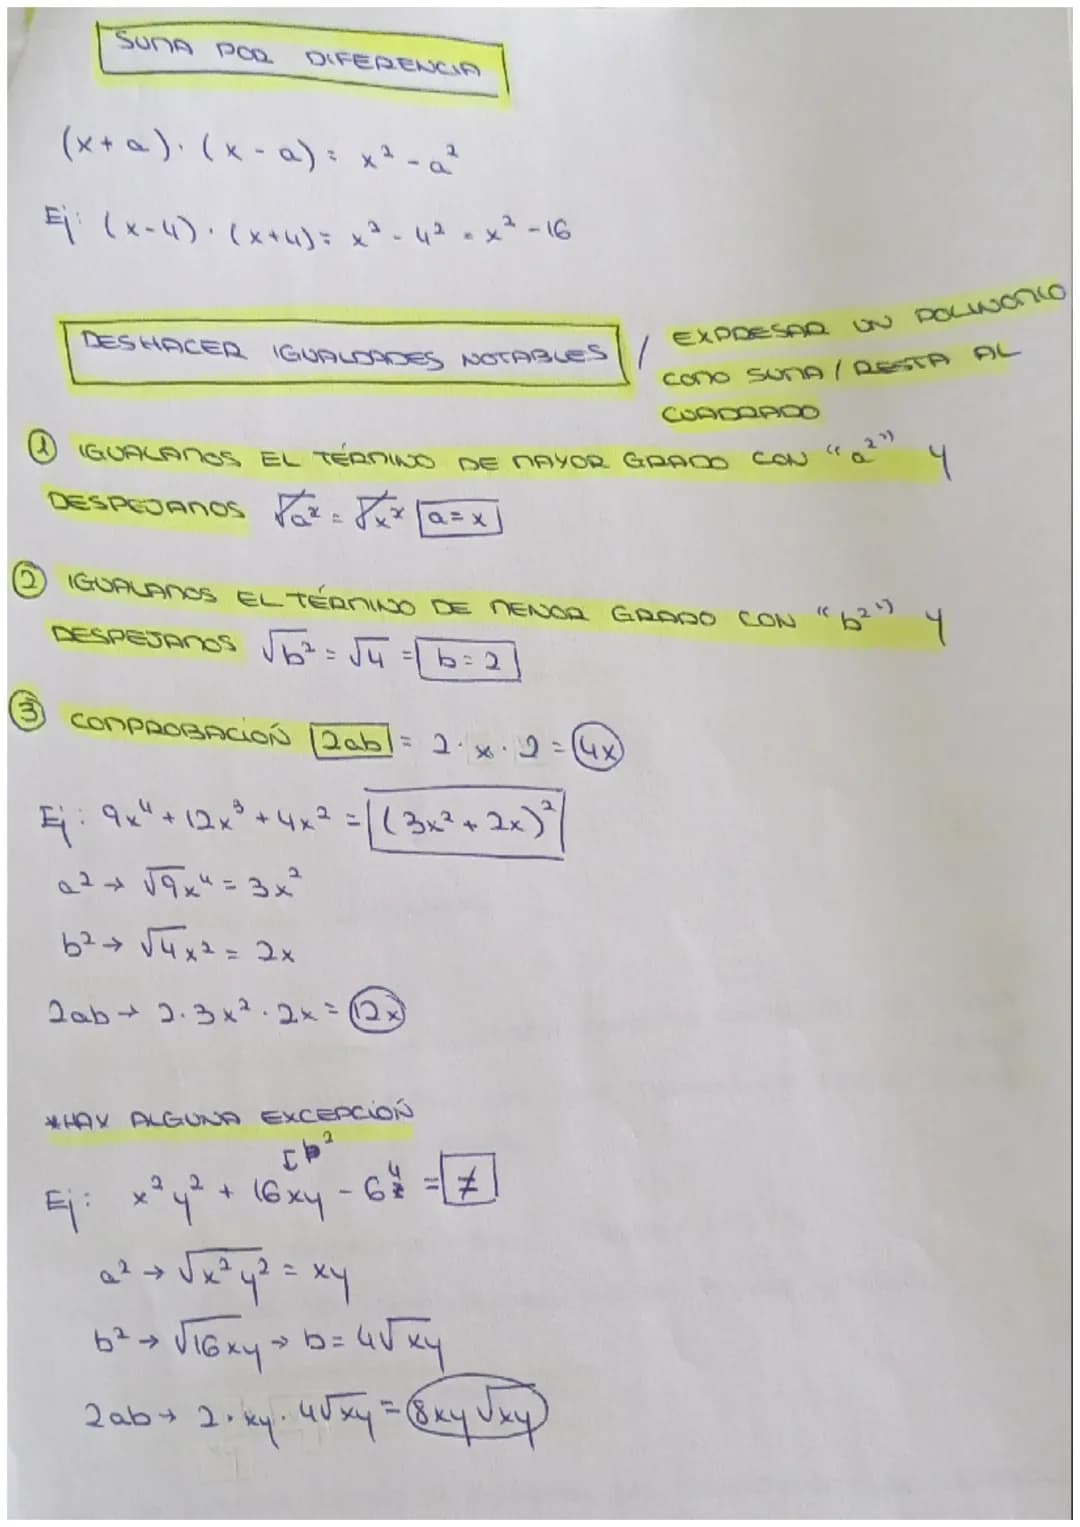 SUMA POR DIFERENCIA
(x+a)·(x-a)= x² - a²
Ej: (x-4)·(x+4)= x² - 4² = x² - 16
DESHACER IGUALDADES NOTABLES / EXPRESAR UN POLINOMIO
COMO SUMA / RESTA AL
CUADRADO
① IGUALAMOS EL TÉRMINO DE MAYOR GRADO CON "a²" Y
DESPEJAMOS √a² = √x² a=x
② IGUALAMOS EL TÉRMINO DE MENOR GRADO CON "b²" Y
DESPEJAMOS √b² = √4 = b=2
③ COMPROBACIÓN 2ab = 2·x·2 = 4x
Ej: 9x⁴ + 12x³ + 4x² = (3x² + 2x)²
a² → √9x⁴ = 3x²
b² → √4x² = 2x
2ab → 2·3x²·2x = 12x
*HAY ALGUNA EXCEPCIÓN
b²
Ej: x²y² + 16xy - 64 = ≠
a² → √x²y² = xy
b² → √16xy → b = 4√xy
2ab → 2·xy·4√xy = 8xy√xy